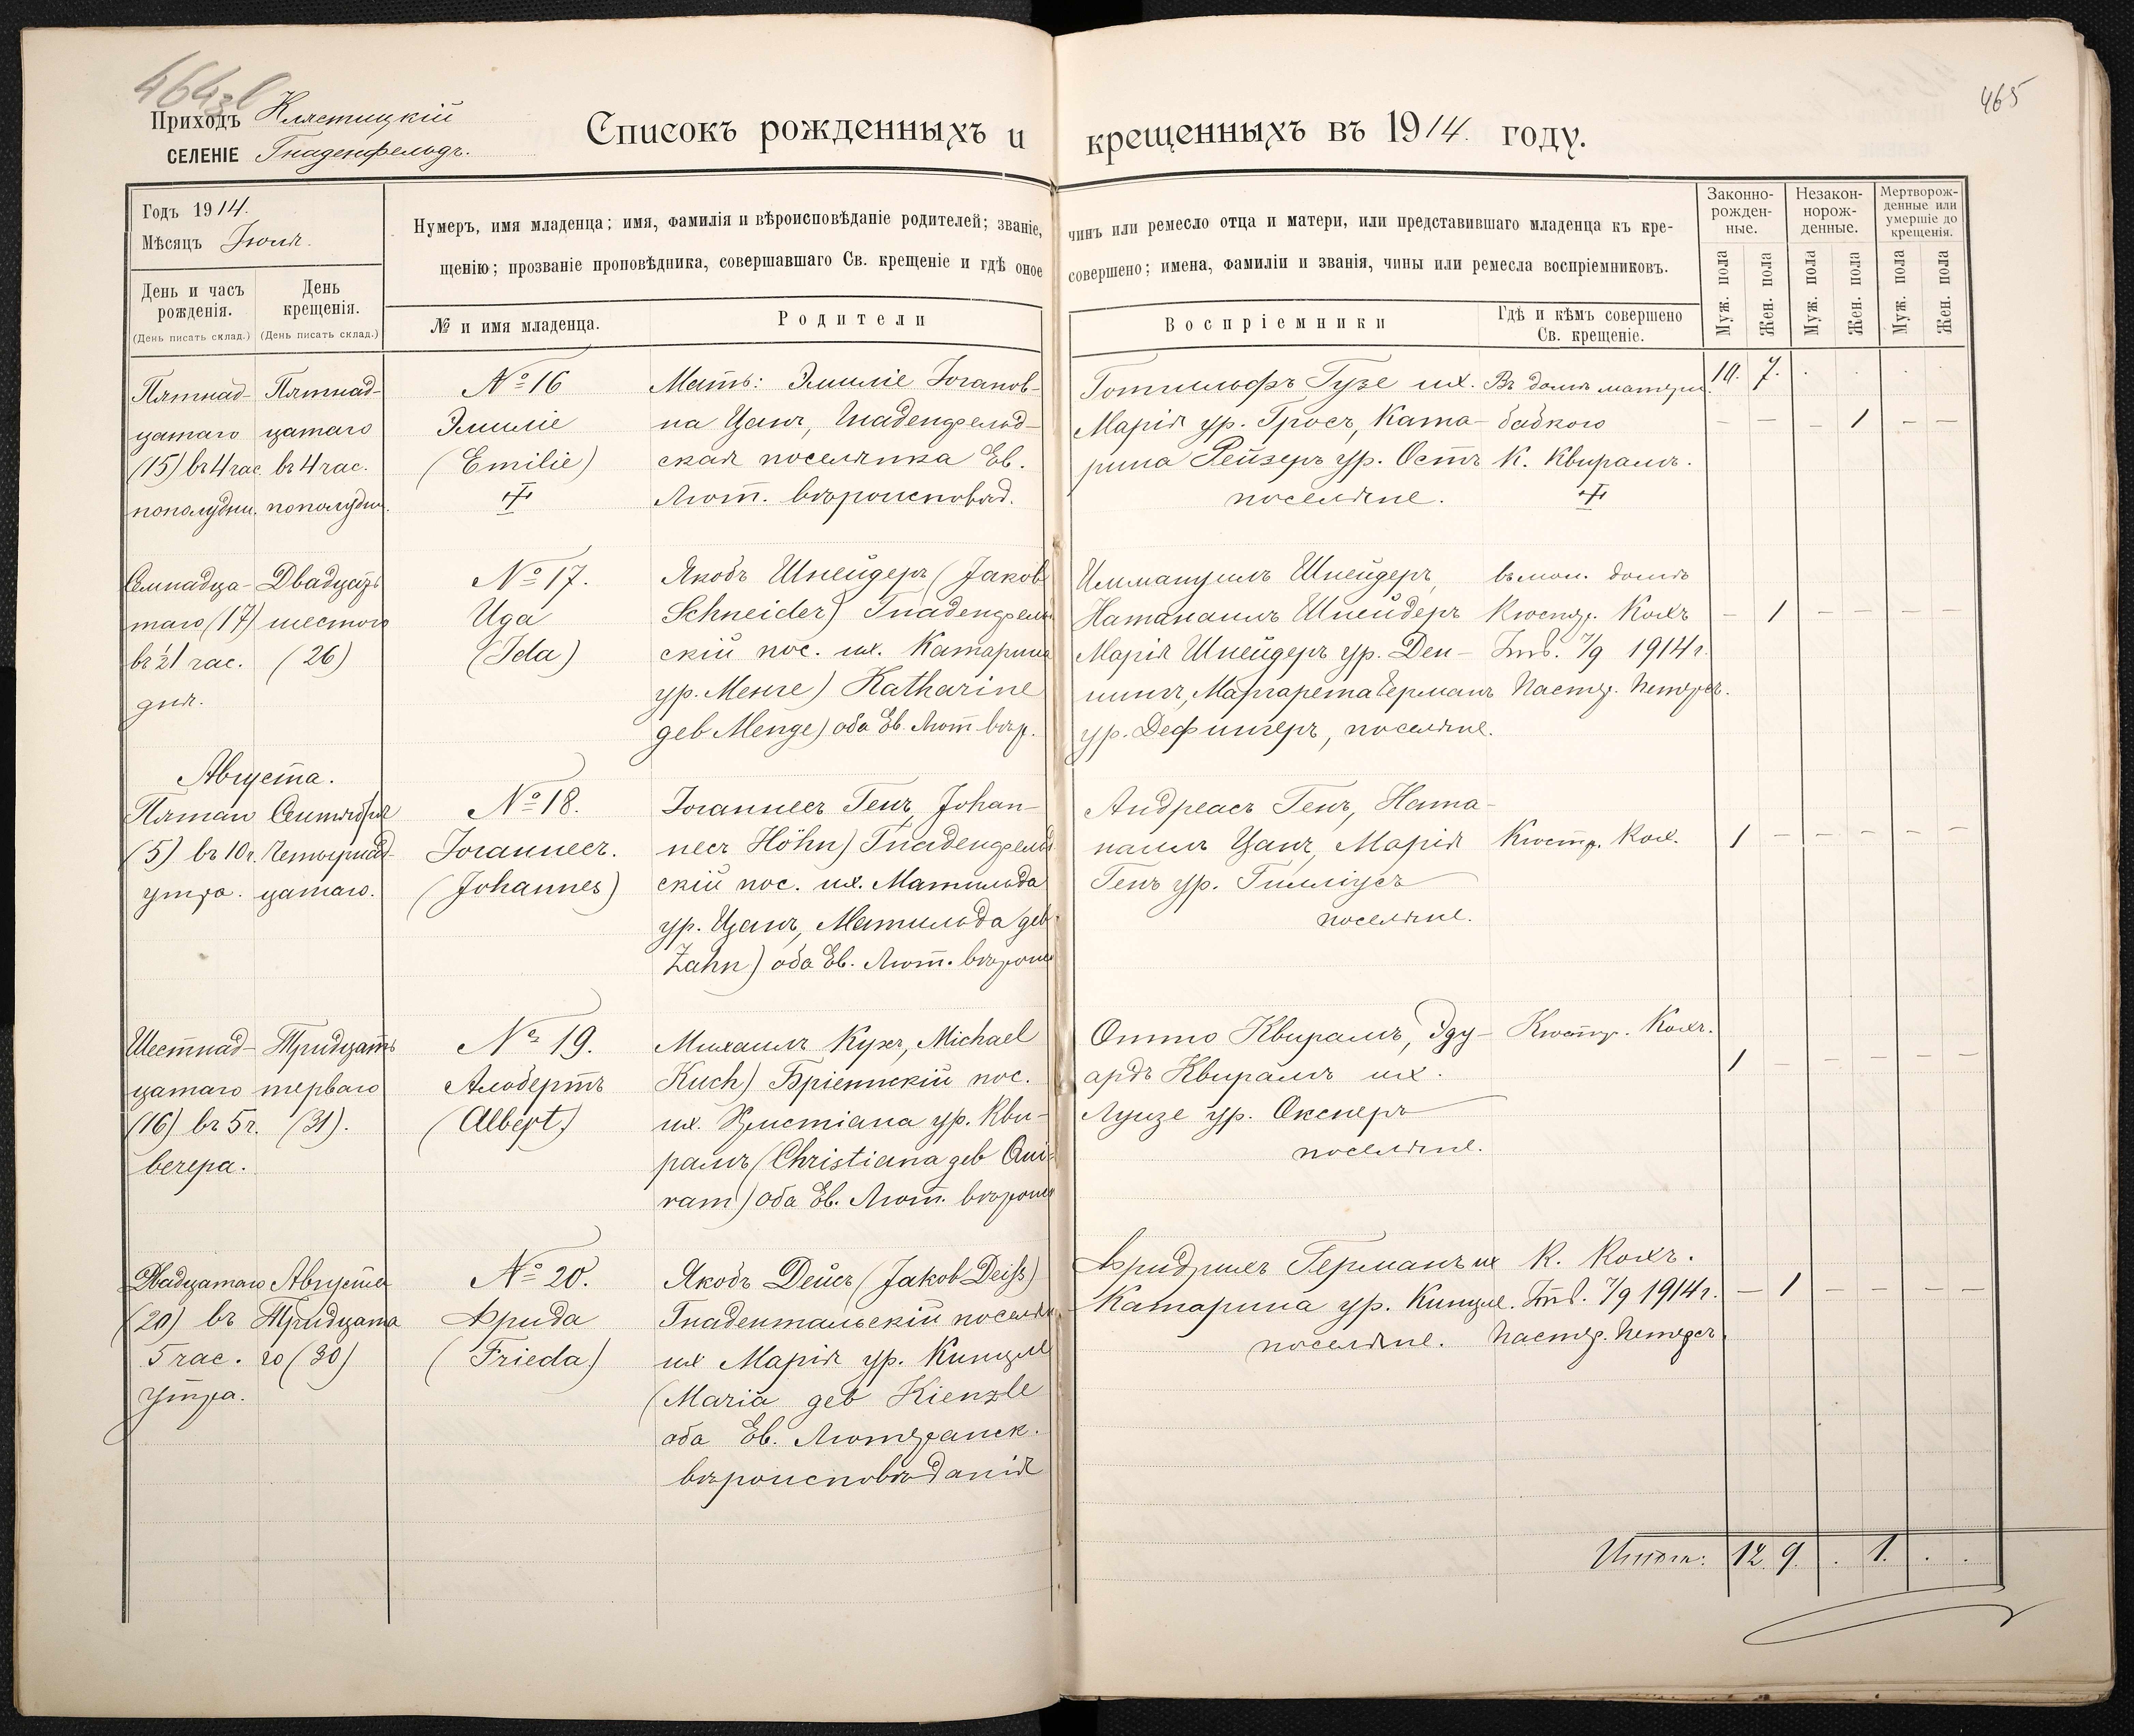 464 зо
465
Приходъ Клястицкій
СЕЛЕНІЕ Гнаденфельдъ.
Списокъ рожденныхъ и крещенныхъ въ 1914. году.
Годъ 1914.
Мѣсяцъ Іюля.
День и часъ рожденія.
(День писать склад.)
День крещенія.
(День писать склад.)
Нумеръ, имя младенца; имя, фамилія и вѣроисповѣданіе родителей; званіе, чинъ или ремесло отца и матери, или представившаго младенца къ кре-
щенію; прозваніе проповѣдника, совершавшаго Св. крещеніе и гдѣ оное совершено; имена, фамиліи и званія, чины или ремесла воспріемниковъ.
№ и имя младенца.
Родители
Воспріемники
Гдѣ и кѣмъ совершено
Св. крещеніе.
Законно-
рожден-
ные.
Незакон-
норож-
денные.
Мертворож-
денные или
умершіе до
крещенія.
Муж. пола
Жен. пола
Муж. пола
Жен. пола
Муж. пола
Жен. пола
Пятнад-
цатаго
(15) въ 4 час.
пополудни.
Пятнад-
цатаго
въ 4 час.
пополудни.
№ 16
Эмиліе
(Emilie)
Мать: Эмиліе Іоганов-
на Цанъ, Гнаденфельд-
ская поселянка Ев.
Лют. вѣроисповѣд.
Готтильфъ Гузе их.
Марія ур. Гросъ, Ката-
рина Рейзеръ ур. Остъ
поселяне.
Въ домѣ матери.
бабкою
К. Квирамъ.
10. 7. . . .
– – – 1 – –
Семнадца-
таго (17)
въ ½1 час.
дня.
Двадцать
шестого
(26)
№ 17.
Ида
(Ida)
Якобъ Шнейдеръ (Jakob
Schneider) Гнаденфельд
скій пос. их. Катарина
ур. Менге) Katharine
geb Menge) оба Ев. Лют. вѣр.
Иммануилъ Шнейдеръ,
Натанаилъ Шнейдеръ
Марія Шнейдеръ ур. Ден-
нингъ, Маргарета Германъ
ур. Дефингеръ, поселяне.
въ мол. домѣ
Кюстер. Кохъ
Ктв. 7/9 1914 г.
Пастор. Петерсъ.
– 1 – – – –
Августа.
Пятаго
(5) въ 10 ч.
утра.
Сентября
Четырнад-
цатаго.
№ 18.
Іоаннесъ.
(Johannes)
Іоганнесъ Генъ, Johan-
несъ Höhn) Гнаденфельд
скій пос. их. Матильда
ур. Цанъ, Матильда geb.
Zahn) оба Ев. Лют. вѣроис
Андреасъ Генъ, Ната-
наилъ Цанъ, Марія
Генъ ур. Гилліусъ
поселяне.
Кюстр. Кох.
1 – – – – –
Шестнад-
цатаго
(16) въ 5 ч.
вечера.
Тридцать
перваго
(31).
№ 19.
Альбертъ
(Albert)
Михаилъ Кухъ, Michael
Kuch) Бріеннскій пос.
их. Христіана ур. Кви-
рамъ (Christiana geb Qui-
ram) оба Ев. Лют. вѣроис
Отто Квирамъ, Эду-
ардъ Квирамъ их.
Луизе ур. Окснеръ
поселяне.
Кюстр. Кохъ.
1 – – – – –
Двадцатаго
(20) въ
5 час.
утра.
Августа
Тридцата
го (30)
№ 20.
Фрида
(Frieda)
Якобъ Дейсъ (Jakob Deiß)
Гнадентальскій поселян
их Марія ур. Кинцле
(Maria geb Kienzle
оба Ев. Лютеранск.
вѣроисповѣданія
Фридрихъ Германъ их
Катарина ур. Кинцле.
поселяне.
К. Кохъ.
Ктв. 7/9 1914 г.
Пастор. Петерсъ.
– 1 – – – –
Итого: 12. 9. . 1. . .